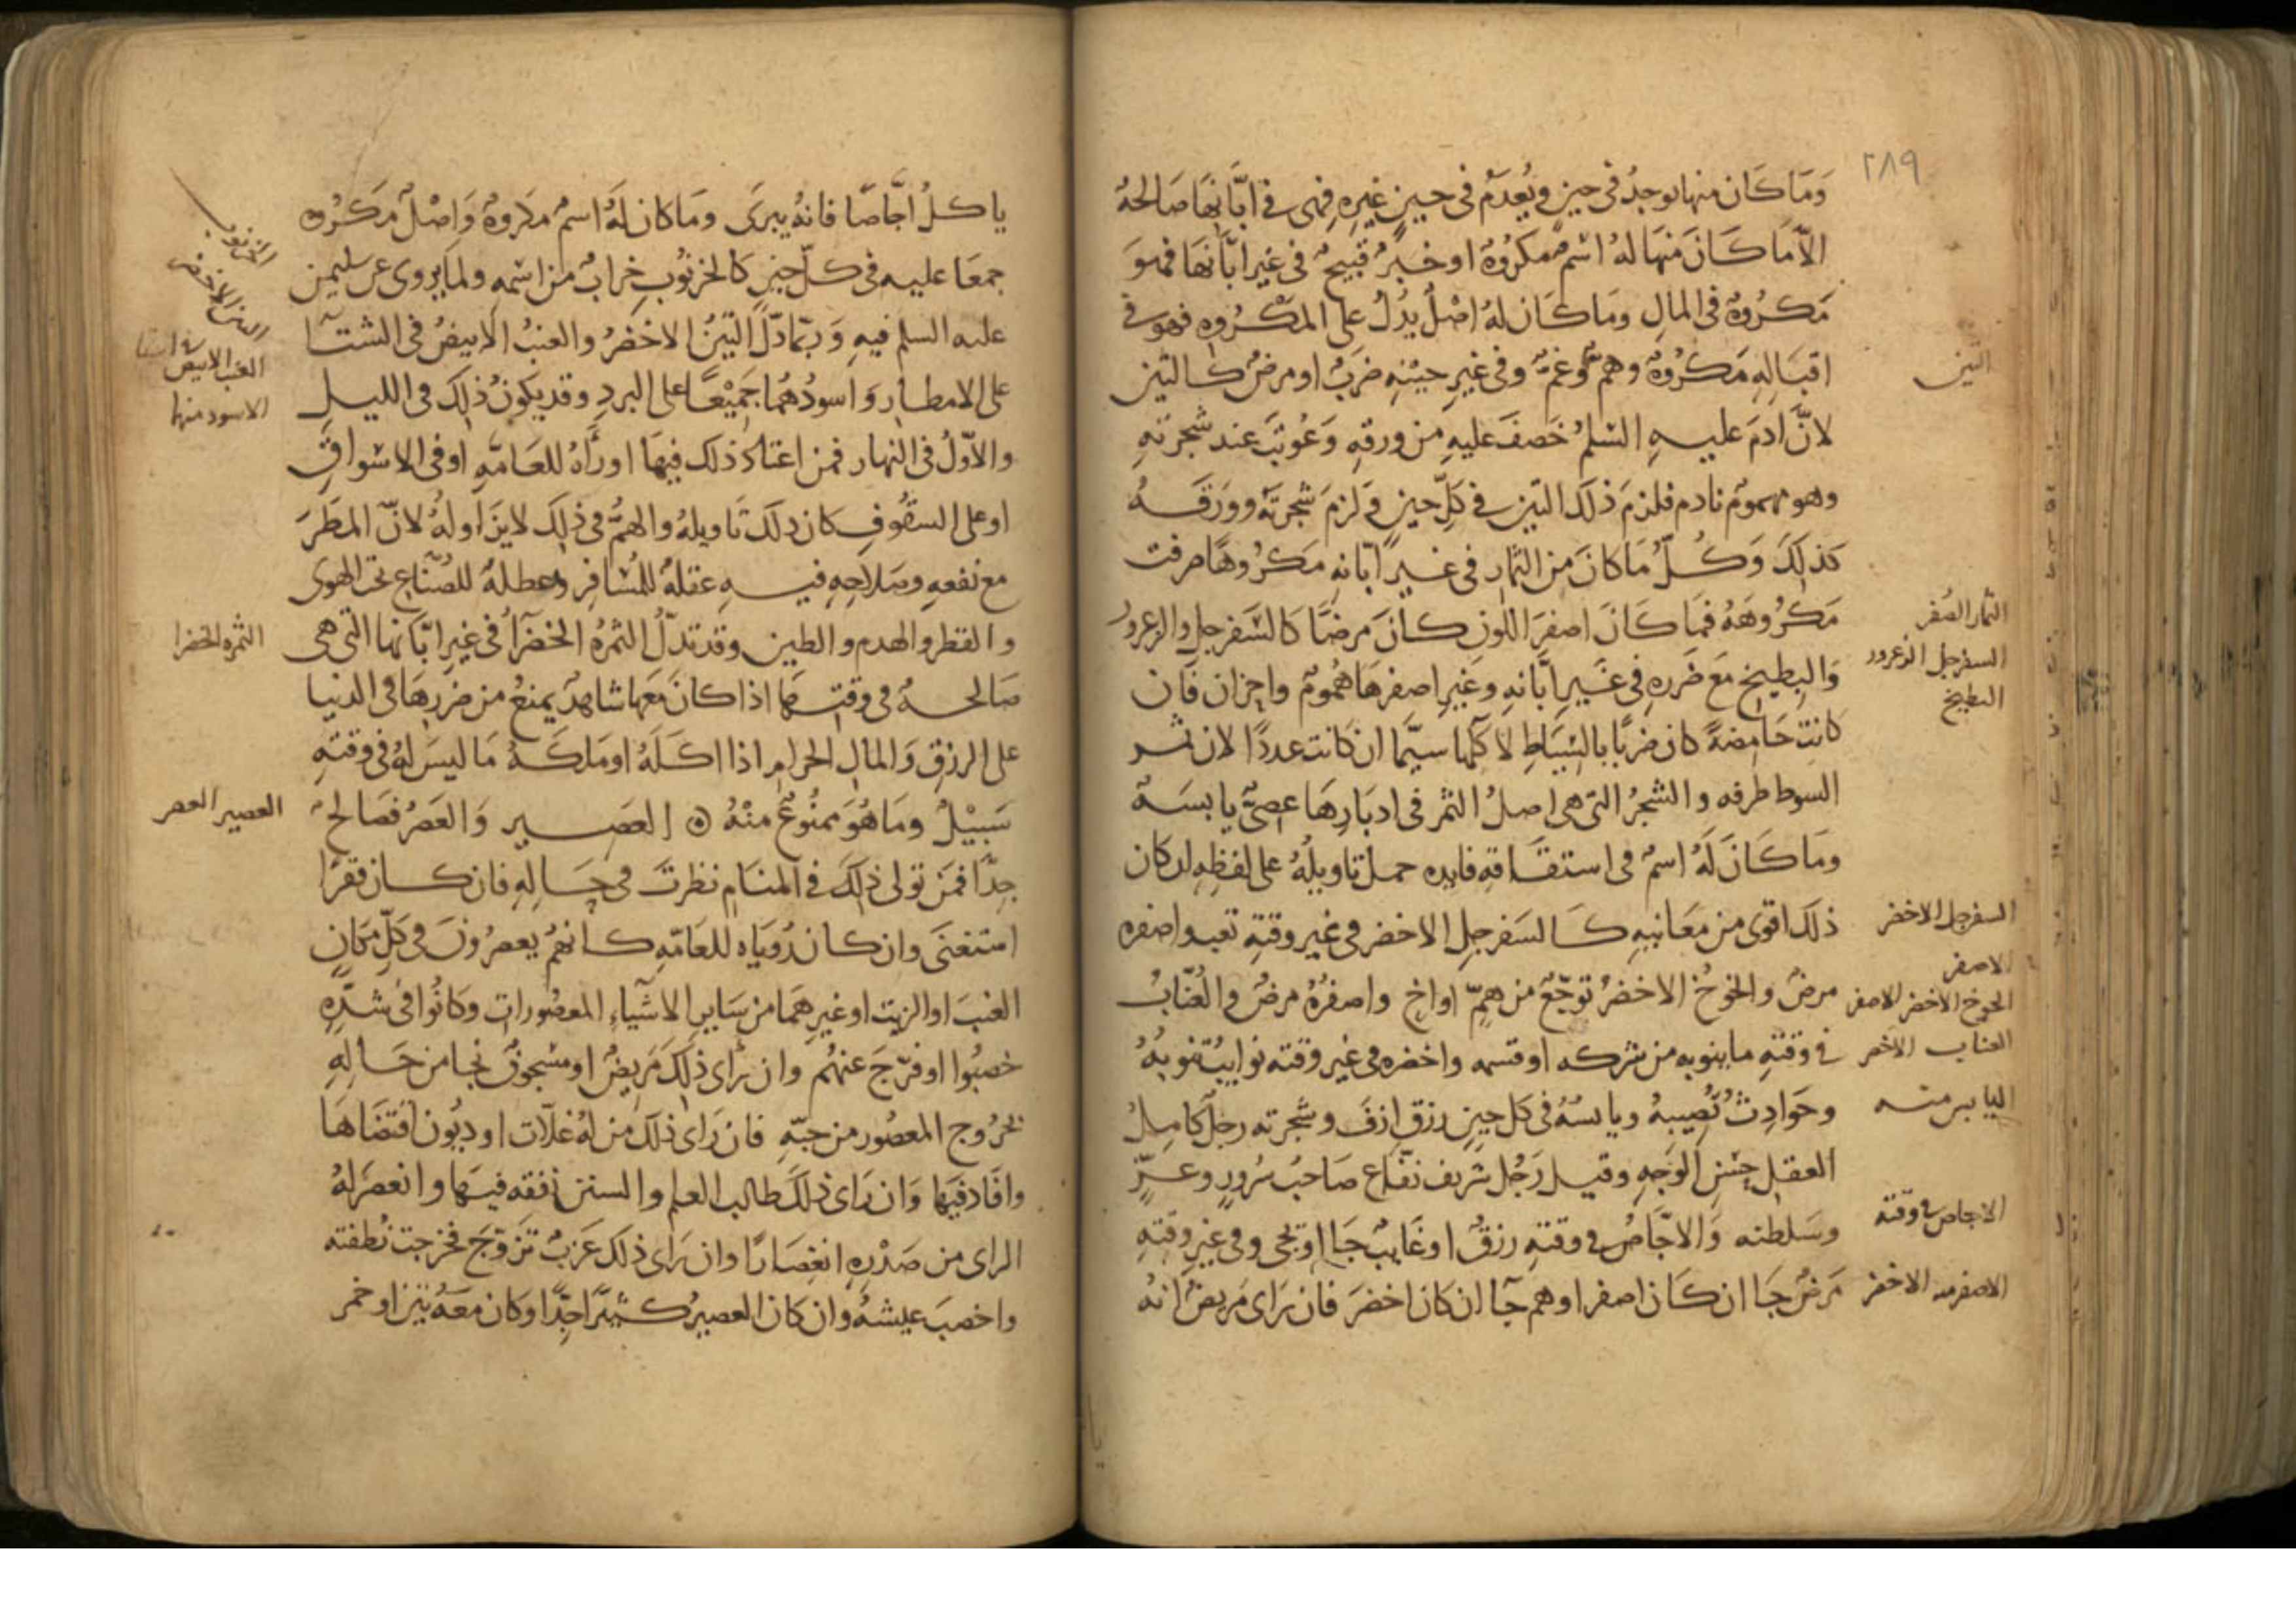 ٢٨٩
وَمَا كَان منها يوجدُ في حينٍ ويُعدَمُ في حينٍ غيرِه فهي في ابّانِهَا صَالحةُ
الّا مَا كَانَ مِنهَا لهُ اسْمٌ مكرُوهٌ او خبرٌ قبيحٌ في غير ابّانهَا فهوَ
مَكرُوهٌ في المالِ ومَا كَان لهُ اصْلٌ يدُلُ على المَكرُوهِ فهو في
اقبَالِهِ مَكرُوهٌ وهمٌّ وغمٌّ وفي غيرِ حيْنِهِ ضَربٌ او مرضٌ كالتين
لانّ آدمَ عليهِ السّلمُ خَصفَ عليهِ من ورقهِ وَعُوتبَ عند شجرتهِ
وهو مهمومٌ نادم فلزمَ ذلك التين في كلّ حينٍ ولزمَ شجرتَه وورَقهُ
كذلِكَ وَكُلّ مَا كانَ من الثمارِ في غيرِ ابّانهِ مَكرُوهًا صرفت
مَكرُوهَهُ فمَا كَانَ اصفرَ اللّون كانَ مرضًا كالسّفرجل والزعرور
وَالبِطيخِ مَعَ ضَررهِ في غَيرِ ابّانهِ وغيرِ اصفرهَا همُومٌ واحزان فان
كانت حَامِضةً كان ضَربًا بالسّيَاطِ لآكلها سيّما ان كانت عددًا لان ثمر
السوط طرفه والشجرُ التي هي اصلُ الثمر في ادبَارِهَا عِصيٌّ يابسَةٌ
ومَا كَانَ لَهُ اسمٌ في اشتقاقهِ فايده حملَ تاويلُهُ على لفظِهِ ان كان
ذلكَ اقوى من مَعَانيهِ كَالسَفرجلِ الاخضر في غير وقتهِ تعب واصفره
مرضٌ والخوخُ الاخضرُ توجّعٌ من همٍّ او اخٍ واصفرُهُ مرضٌ والعُنّابُ
في وقتهِ ما ينوبه من شركه او قسمه واخضره في غير وقته نوايبُ تنوبُهُ
وحَوادِثُ تُصِيبهُ ويابسُهُ في كل حينٍ رزق ازفَ وشجرته رجلٌ كامِلُ
العقلِ حسَنِ الوجهِ وقيل رَجُل شريف نفّاع صَاحبُ سُرورٍ وعزٍّ
وسَلطنه وَالاجّاصُ في وقتهِ رزقٌ او غايبٌ جَا او يجى وفي غيرِ وقتهِ
مَرضٌ جَا ان كَان اصفر او هم جَا ان كان اخضرَ فان رَاى مَريضٌ انهُ
التين
الثمار الصُفر
السفرجل الزعرور
البطيخ
السفرجل الاخضر
الاصفر
الخوخ الاخضر الاصفر
العناب الاخضر
اليابس منه
الاجاص في وقته
الاصفر منه الاخضر
ياكلُ اجَّاصًا فانهُ يبرَى ومَا كان لَهُ اسمٌ مكروهٌ وَاصْلٌ مَكرُوه
جمعَا عليه في كلّ حينٍ كالخرنوُبِ خرابٌ من اسْمهِ ولما يروى عن سليمن
عليه السلم فيهِ وَربّما دَلّ التينُ الاخضَرُ والعنبُ الابيضُ في الشتآ
على الامطار وَاسودُهُما جَميعًا على البردِ وقد يكونُ ذلكَ في الليلِ
والاوّلُ في النهار فمن اعتاد ذلك فيهَا او رَآهُ للعَامّهِ او في الاسْواقِ
او على السقُوفِ كان ذلكَ تَاويلهُ والهمُّ في ذلِكَ لا يزَاوله لانّ المطَرَ
مع نفعهِ وصَلاحِهِ فيهِ عقلهُ للمُسَافِر وعطلهُ للصُنّاعِ تحت الهوى
والقطر والهدم والطين وقد تدلّ الثمرُهُ الخضرآُ في غيرِ ابّانها التي هي
صَالحهُ في وقتِهَا اذا كانَ مَعهَا شاهِدٌ يمنعُ من ضَررِهَا في الدنيا
على الرزقِ وَالمالِ الحرامِ اذا اكَلَهُ او مَلكَهُ مَا ليسَ لهُ في وقتهِ
سَبِيْلٌ ومَا هُوَ ممنُوعٌ منْهُ ۞ العَصير وَالعَصْرُ فصَالحٌ
جِدًّا فمَن تولى ذلكَ في المنَامِ نظرتَ في حَالِهِ فان كان فقرًا
استغنَى وان كان رُويَاه للعَامّهِ كَانهُم يعصرُونَ في كلّ مكَانٍ
العنبَ او الزيت او غيرِهمَا من سَايرِ الاشيَاءِ المعصُورات وكانُوا في شدّهِ
خصبُوا او فرّجَ عنهُم وان رَاى ذلِكَ مَريضٌ او مسْجُونٌ نجا من حَالهِ
بخرُوج المعصُور من حبّهِ فان رَاى ذلكَ من لهُ غلّات او ديُون اقتضَاهَا
وافَاد فيهَا وَان رَاى ذلكَ طالب العلم والسنن تفقه فيهَا وانعصَرَ لهُ
الراى من صَدْرِهِ انعِصَارًا وان رَاى ذلك عَزبٌ تزوّجَ فخرجت نُطفته
واخصبَ عيشهُ وان كان العصيرُ كثيرًا جدًّا وكان معَهُ تينٌ او خمر
الخرنوب
التين الاخضر
العنب الابيض
الاسود منها
الثمره الخضرا
العصير العصر